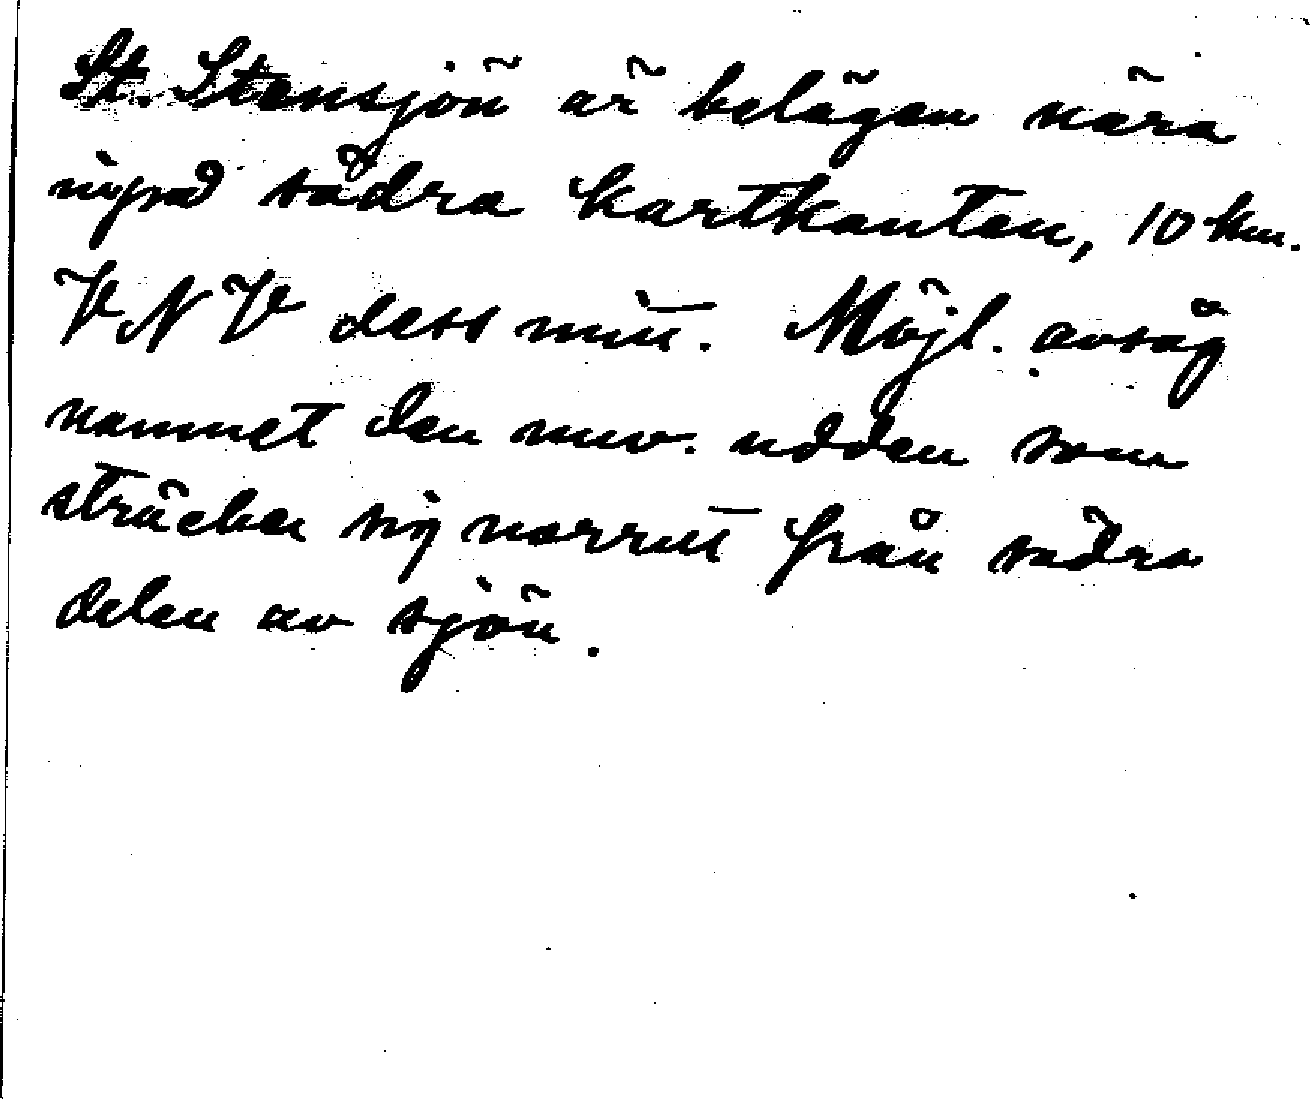 St. Stensjön är belägen nära
invid södra kartkanten, 10 km.
V N V dess mitt. Möjl. avsåg
namnet den nuv. udden som
sträcker sig norrut från södra
delen av sjön.